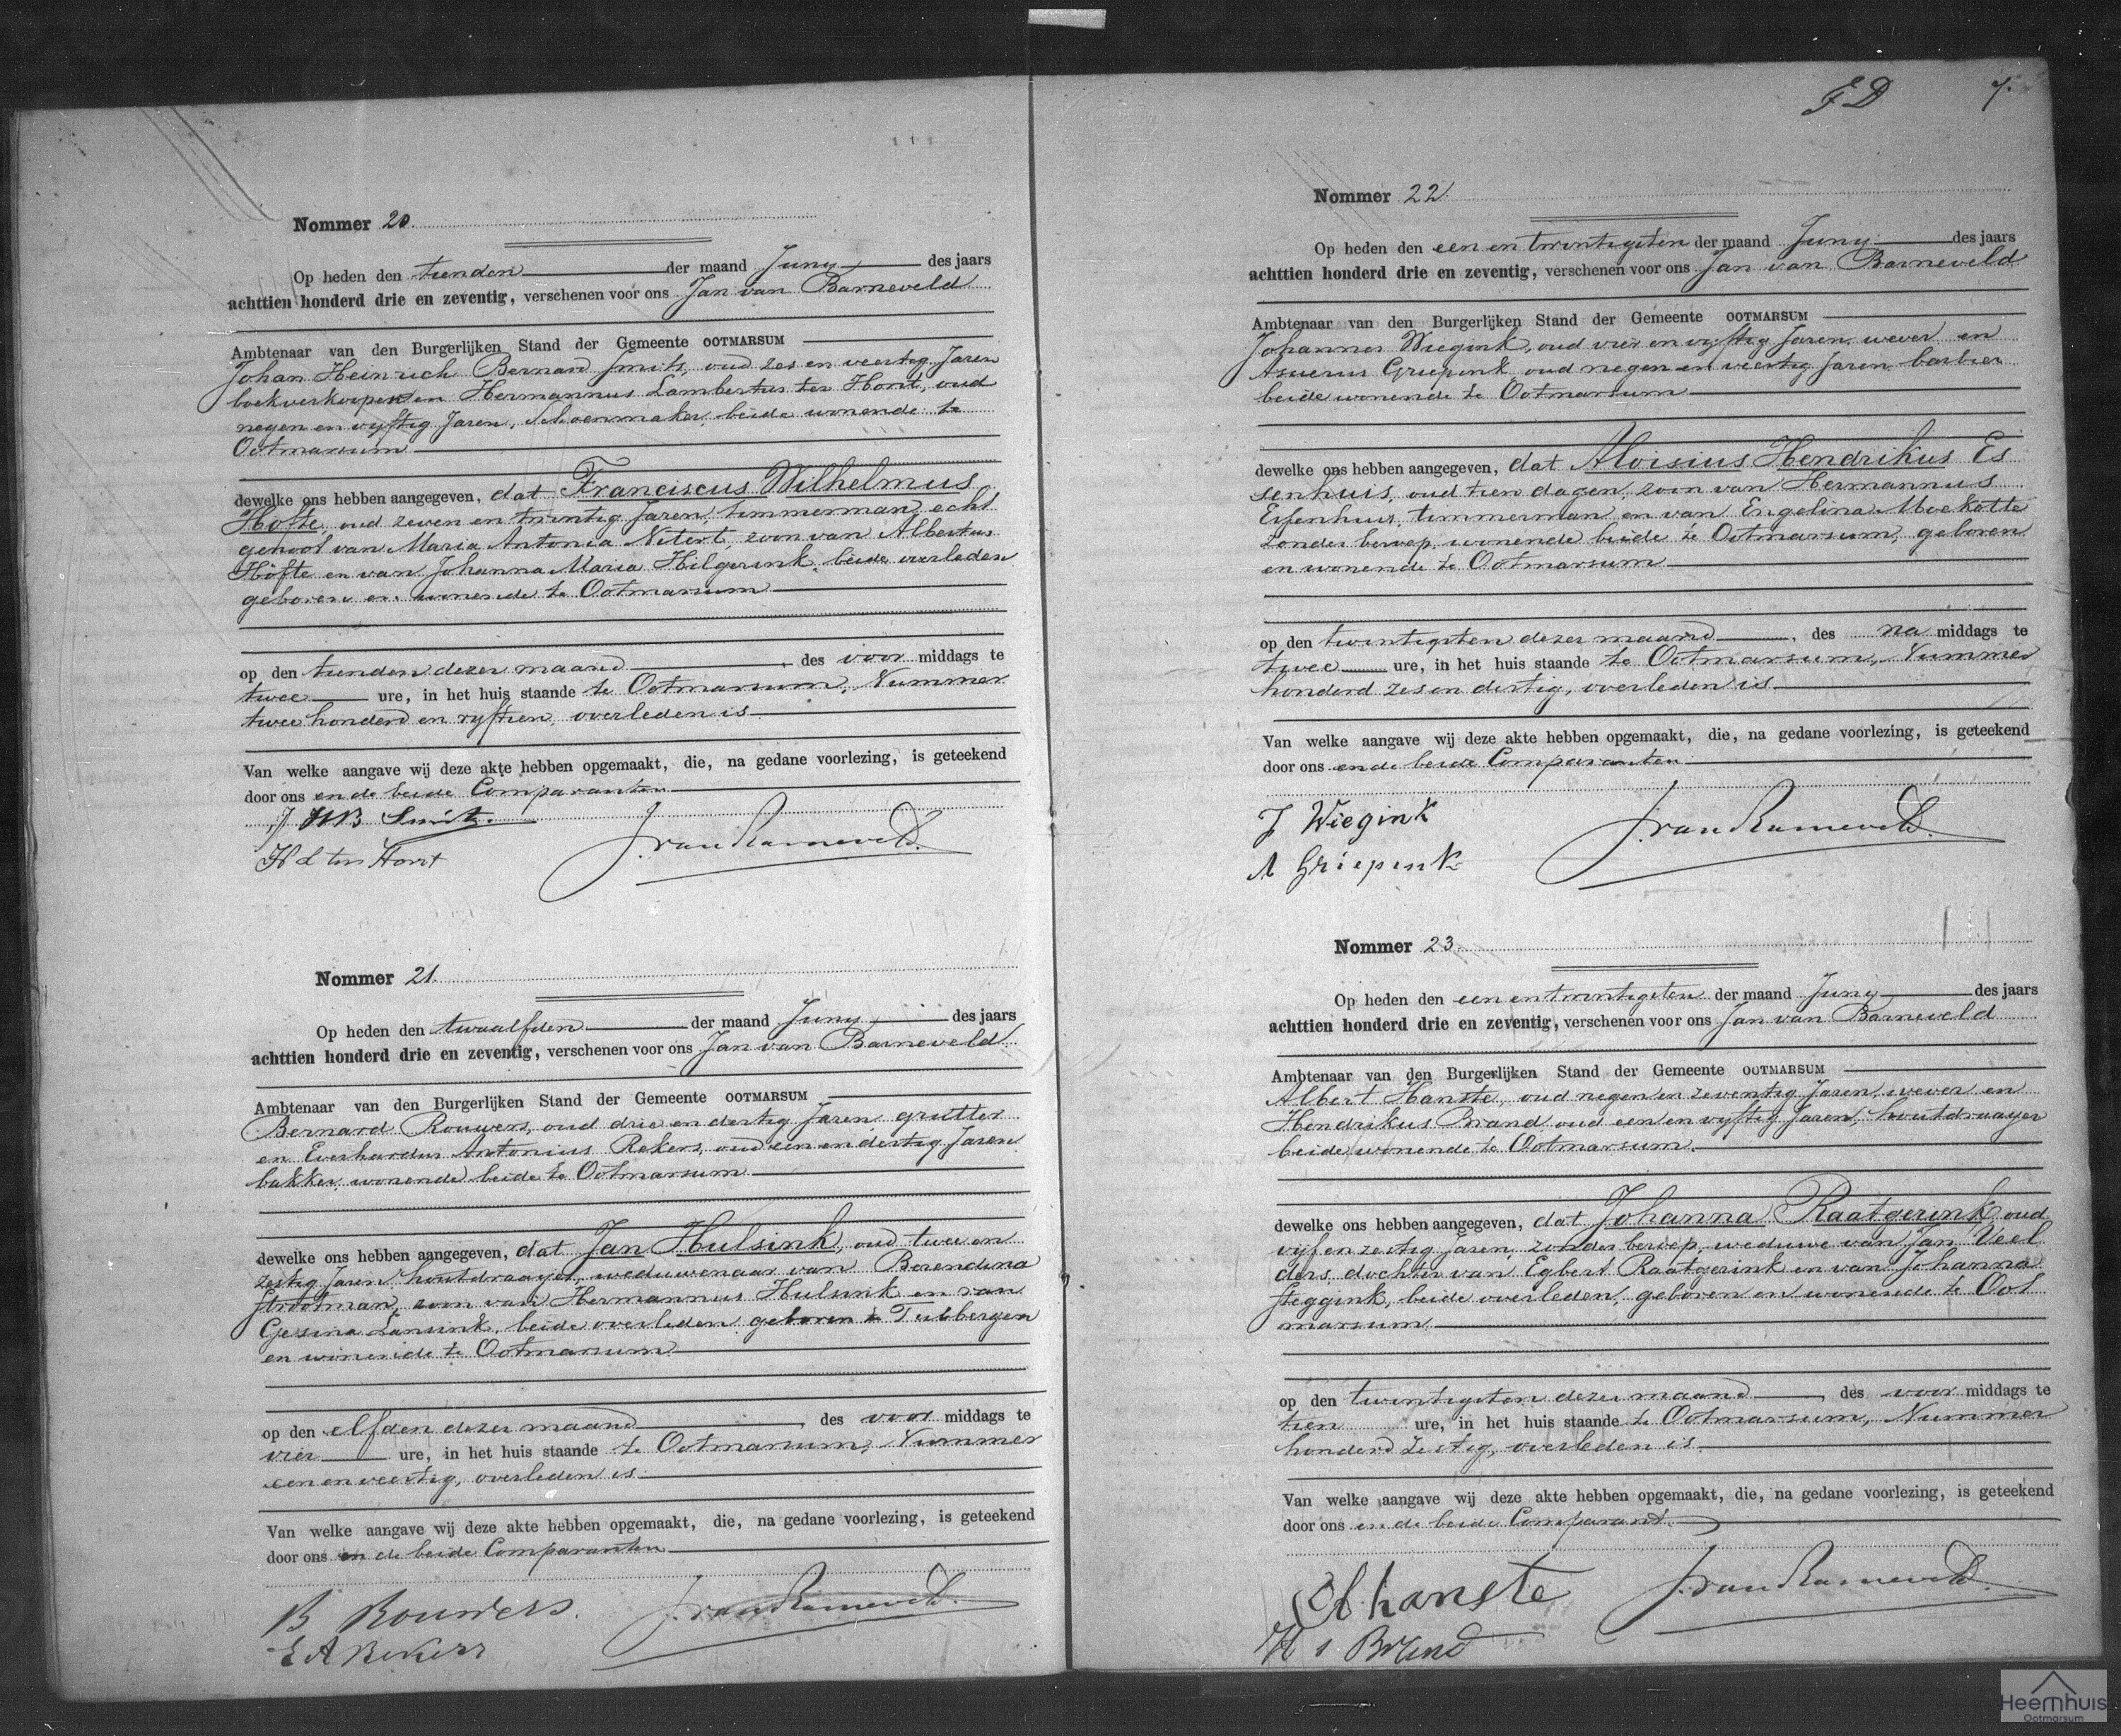 Nommer 20.
Op heden den tienden der maand Juny des jaars
achttien honderd drie en zeventig, verschenen voor ons Jan van Barneveld
Ambtenaar van den Burgerlijken Stand der Gemeente OOTMARSUM
Johan Heinrich Bernard Smits, oud zes en veertig Jaren
boekverkooper en Hermannus Lambertus ter Horst, oud
negen en vyftig Jaren, Schoenmaker, beide wonende te
Ootmarsum
dewelke ons hebben aangegeven, dat Franciscus Wilhelmus
Höfte, oud zeven en twintig Jaren, timmerman, echt
genoot van Maria Antonia Nitert, zoon van Albertus
Höfte en van Johanna Maria Hilgerink, beide overleden
geboren en wonende te Ootmarsum
op den tienden dezer maand, des voor middags te
twee ure, in het huis staande te Ootmarsum, Nummer
twee honderd en vyftien, overleden is
Van welke aangave wij deze akte hebben opgemaakt, die, na gedane voorlezing, is geteekend
door ons en de beide Comparanten
J HB Smits.
H L ter Horst
J. van Barneveld.
Nommer 21.
Op heden den twaalfden der maand Juny des jaars
achttien honderd drie en zeventig, verschenen voor ons Jan van Barneveld
Ambtenaar van den Burgerlijken Stand der Gemeente OOTMARSUM
Bernard Rouwers, oud drie en dertig Jaren, grutter
en Everhardus Antonius Rekers, oud een en dertig Jaren
bakker, wonende beide te Ootmarsum
dewelke ons hebben aangegeven, dat Jan Hulsink, oud twee en
zestig Jaren houtdraayer, weduwenaar van Berendina
Strootman, zoon van Hermannus Hulsink en van
Gesina Lansink, beide overleden, geboren te Tubbergen
en wonende te Ootmarsum
op den elfden dezer maand, des voor middags te
vier ure, in het huis staande te Ootmarsum, Nummer
een en veertig, overleden is
Van welke aangave wij deze akte hebben opgemaakt, die, na gedane voorlezing, is geteekend
door ons en de beide Comparanten
B Rouwers.
E A Rekers
J. van Barneveld.
7.
Nommer 22.
Op heden den een en twintigsten der maand Juny des jaars
achttien honderd drie en zeventig, verschenen voor ons Jan van Barneveld
Ambtenaar van den Burgerlijken Stand der Gemeente OOTMARSUM
Johannes Wiegink, oud vier en vyftig Jaren, wever en
Asuerus Griepink oud negen en veertig Jaren barbier
beide wonende te Ootmarsum
dewelke ons hebben aangegeven, dat Aloisius Hendrikus Es
senhuis, oud tien dagen, zoon van Hermannus
Essenhuis, timmerman en van Engelina Moekotte
zonder beroep, wonende beide te Ootmarsum, geboren
en wonende te Ootmarsum
op den twintigsten dezer maand, des na middags te
twee ure, in het huis staande te Ootmarsum, Nummer
honderd zes en dertig, overleden is
Van welke aangave wij deze akte hebben opgemaakt, die, na gedane voorlezing, is geteekend
door ons en de beide Comparanten
J Wiegink
A Griepenk
J. van Barneveld.
Nommer 23.
Op heden den een en twintigsten der maand Juny des jaars
achttien honderd drie en zeventig, verschenen voor ons Jan van Barneveld
Ambtenaar van den Burgerlijken Stand der Gemeente OOTMARSUM
Albert Hanste, oud negen en zeventig Jaren, wever en
Hendrikus Brand oud een en vyftig Jaren, houtdraayer
beide wonende te Ootmarsum.
dewelke ons hebben aangegeven, dat Johanna Raatgerink, oud
vijf en zestig Jaren, zonder beroep, weduwe van Jan Veel
ders, dochter van Egbert Raatgerink en van Johanna
Steggink, beide overleden, geboren en wonende te Oot
marsum
op den twintigsten dezer maand, des voor middags te
tien ure, in het huis staande te Ootmarsum, Nummer
honderd zestig, overleden is
Van welke aangave wij deze akte hebben opgemaakt, die, na gedane voorlezing, is geteekend
door ons en de beide Comparant.
A hanste
H Brand
J. van Barneveld.
Heemhuis
Ootmarsum